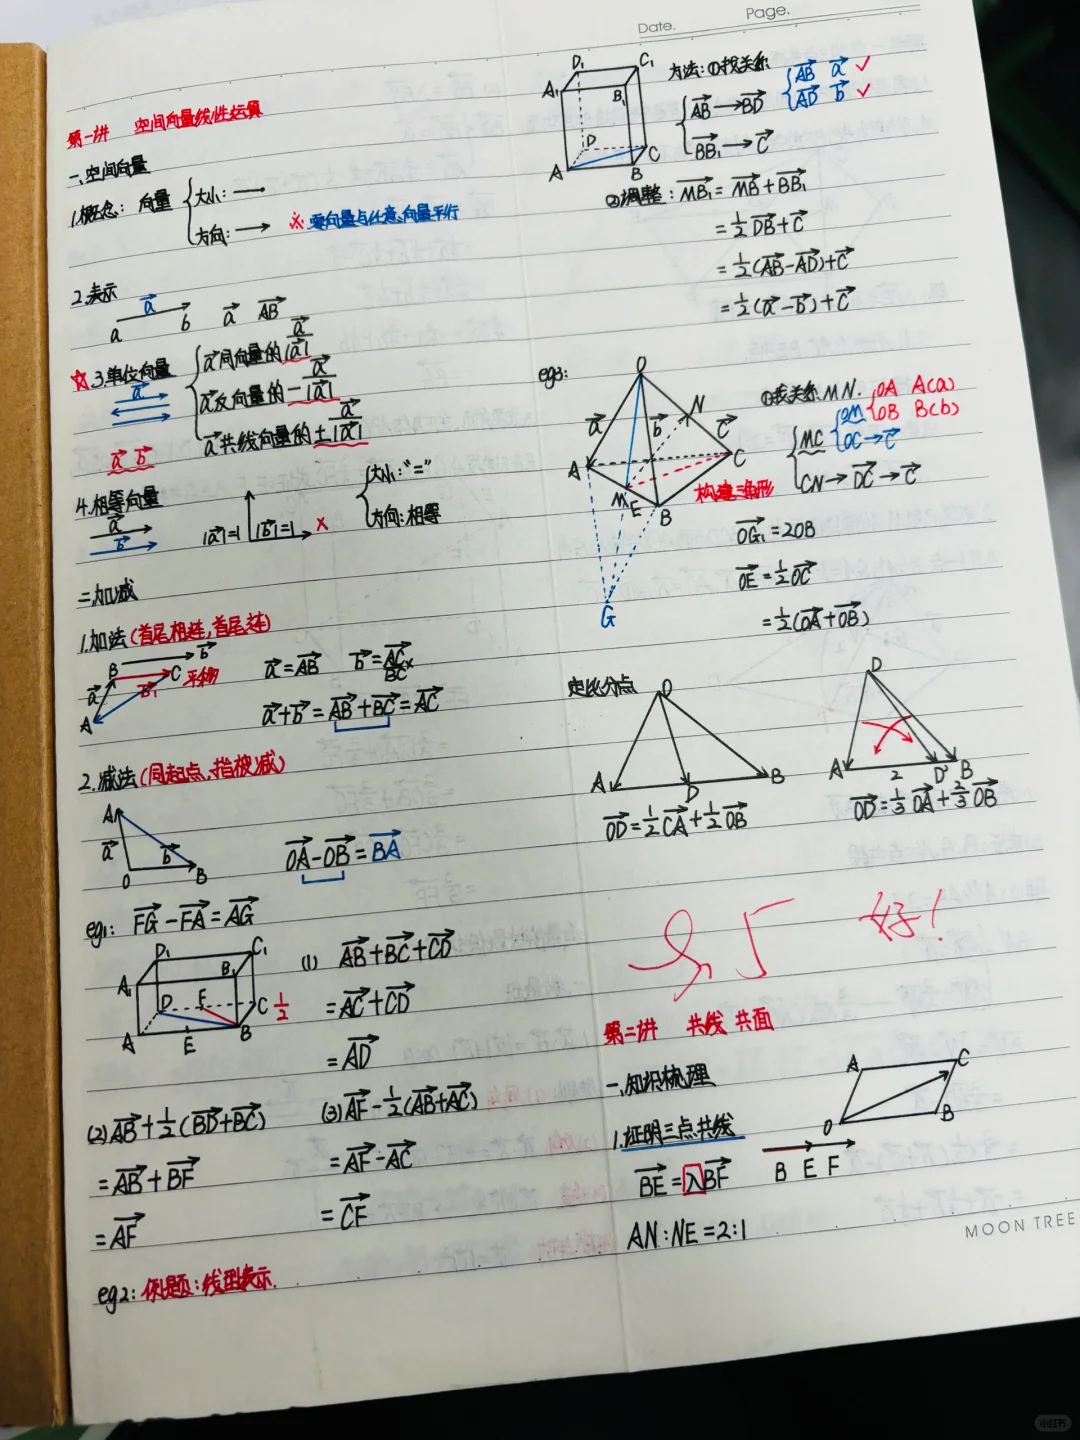 Date.
Page.
第一讲 空间向量线性运算
一、空间向量
1.概念: 向量
大小:
方向: →
※ 零向量与任意向量平行
2.表示
a→
a b a→ AB→
☆ 3.单位向量
a→同向量的 a→/|a→|
a→反向量的 -a→/|a→|
a→共线向量的 ±a→/|a→|
a→
a→ b→
4.相等向量
大小:"="
方向:相等
a→
b→
|a→|=1 |b→|=1 ×
二.加减
1.加法(首尾相连,首尾连)
B b→
C 平移
a→ b₁→
A
a→=AB→ b→=AC→×
BC→
a→+b→=AB→+BC→=AC→
2.减法(同起点,指被减)
A
a→ b→
O B
OA→-OB→=BA→
eg1: FG→-FA→=AG→
D₁ C₁
A₁ B₁
D F C 1/2
A E B
(1) AB→+BC→+CD→
=AC→+CD→
=AD→
(2) AB→+1/2(BD→+BC→)
=AB→+BF→
=AF→
(3) AF→-1/2(AB→+AC→)
=AF→-AC→
=CF→
eg2: 例题:线型表示
D₁ C₁
A₁ B₁
D C
A B
方法:①找关系
AB→ a→ ✓
AD→ b→ ✓
AB→→BD→
BB₁→→C→
②调整: MB₁→=MB→+BB₁→
=1/2DB→+C→
=1/2(AB→-AD→)+C→
=1/2(a→-b→)+C→
eg3:
O
a→ b→ N C→
A C
M E B
G
构建三角形
①找关系.M N.
OA A(a)
OB B(b)
MC
OM
OC→C→
CN→DC→→C→
OG₁→=2OB
OE→=1/2OC→
=1/2(OA→+OB→)
定比分点
O
A D B
OD→=1/2CA→+1/2OB→
D
A 2 D' B
OD→=1/3OA→+2/3OB→
好!
第二讲 共线 共面
一.知识梳理
1.证明三点共线
A C
O B
BE→=λBF→
B E F
AN:NE=2:1
MOON TREE
小红书